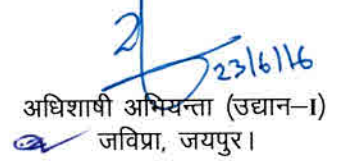 23/6/16
अधिशाषी अभियन्ता (उद्यान–I)
जविप्रा, जयपुर।